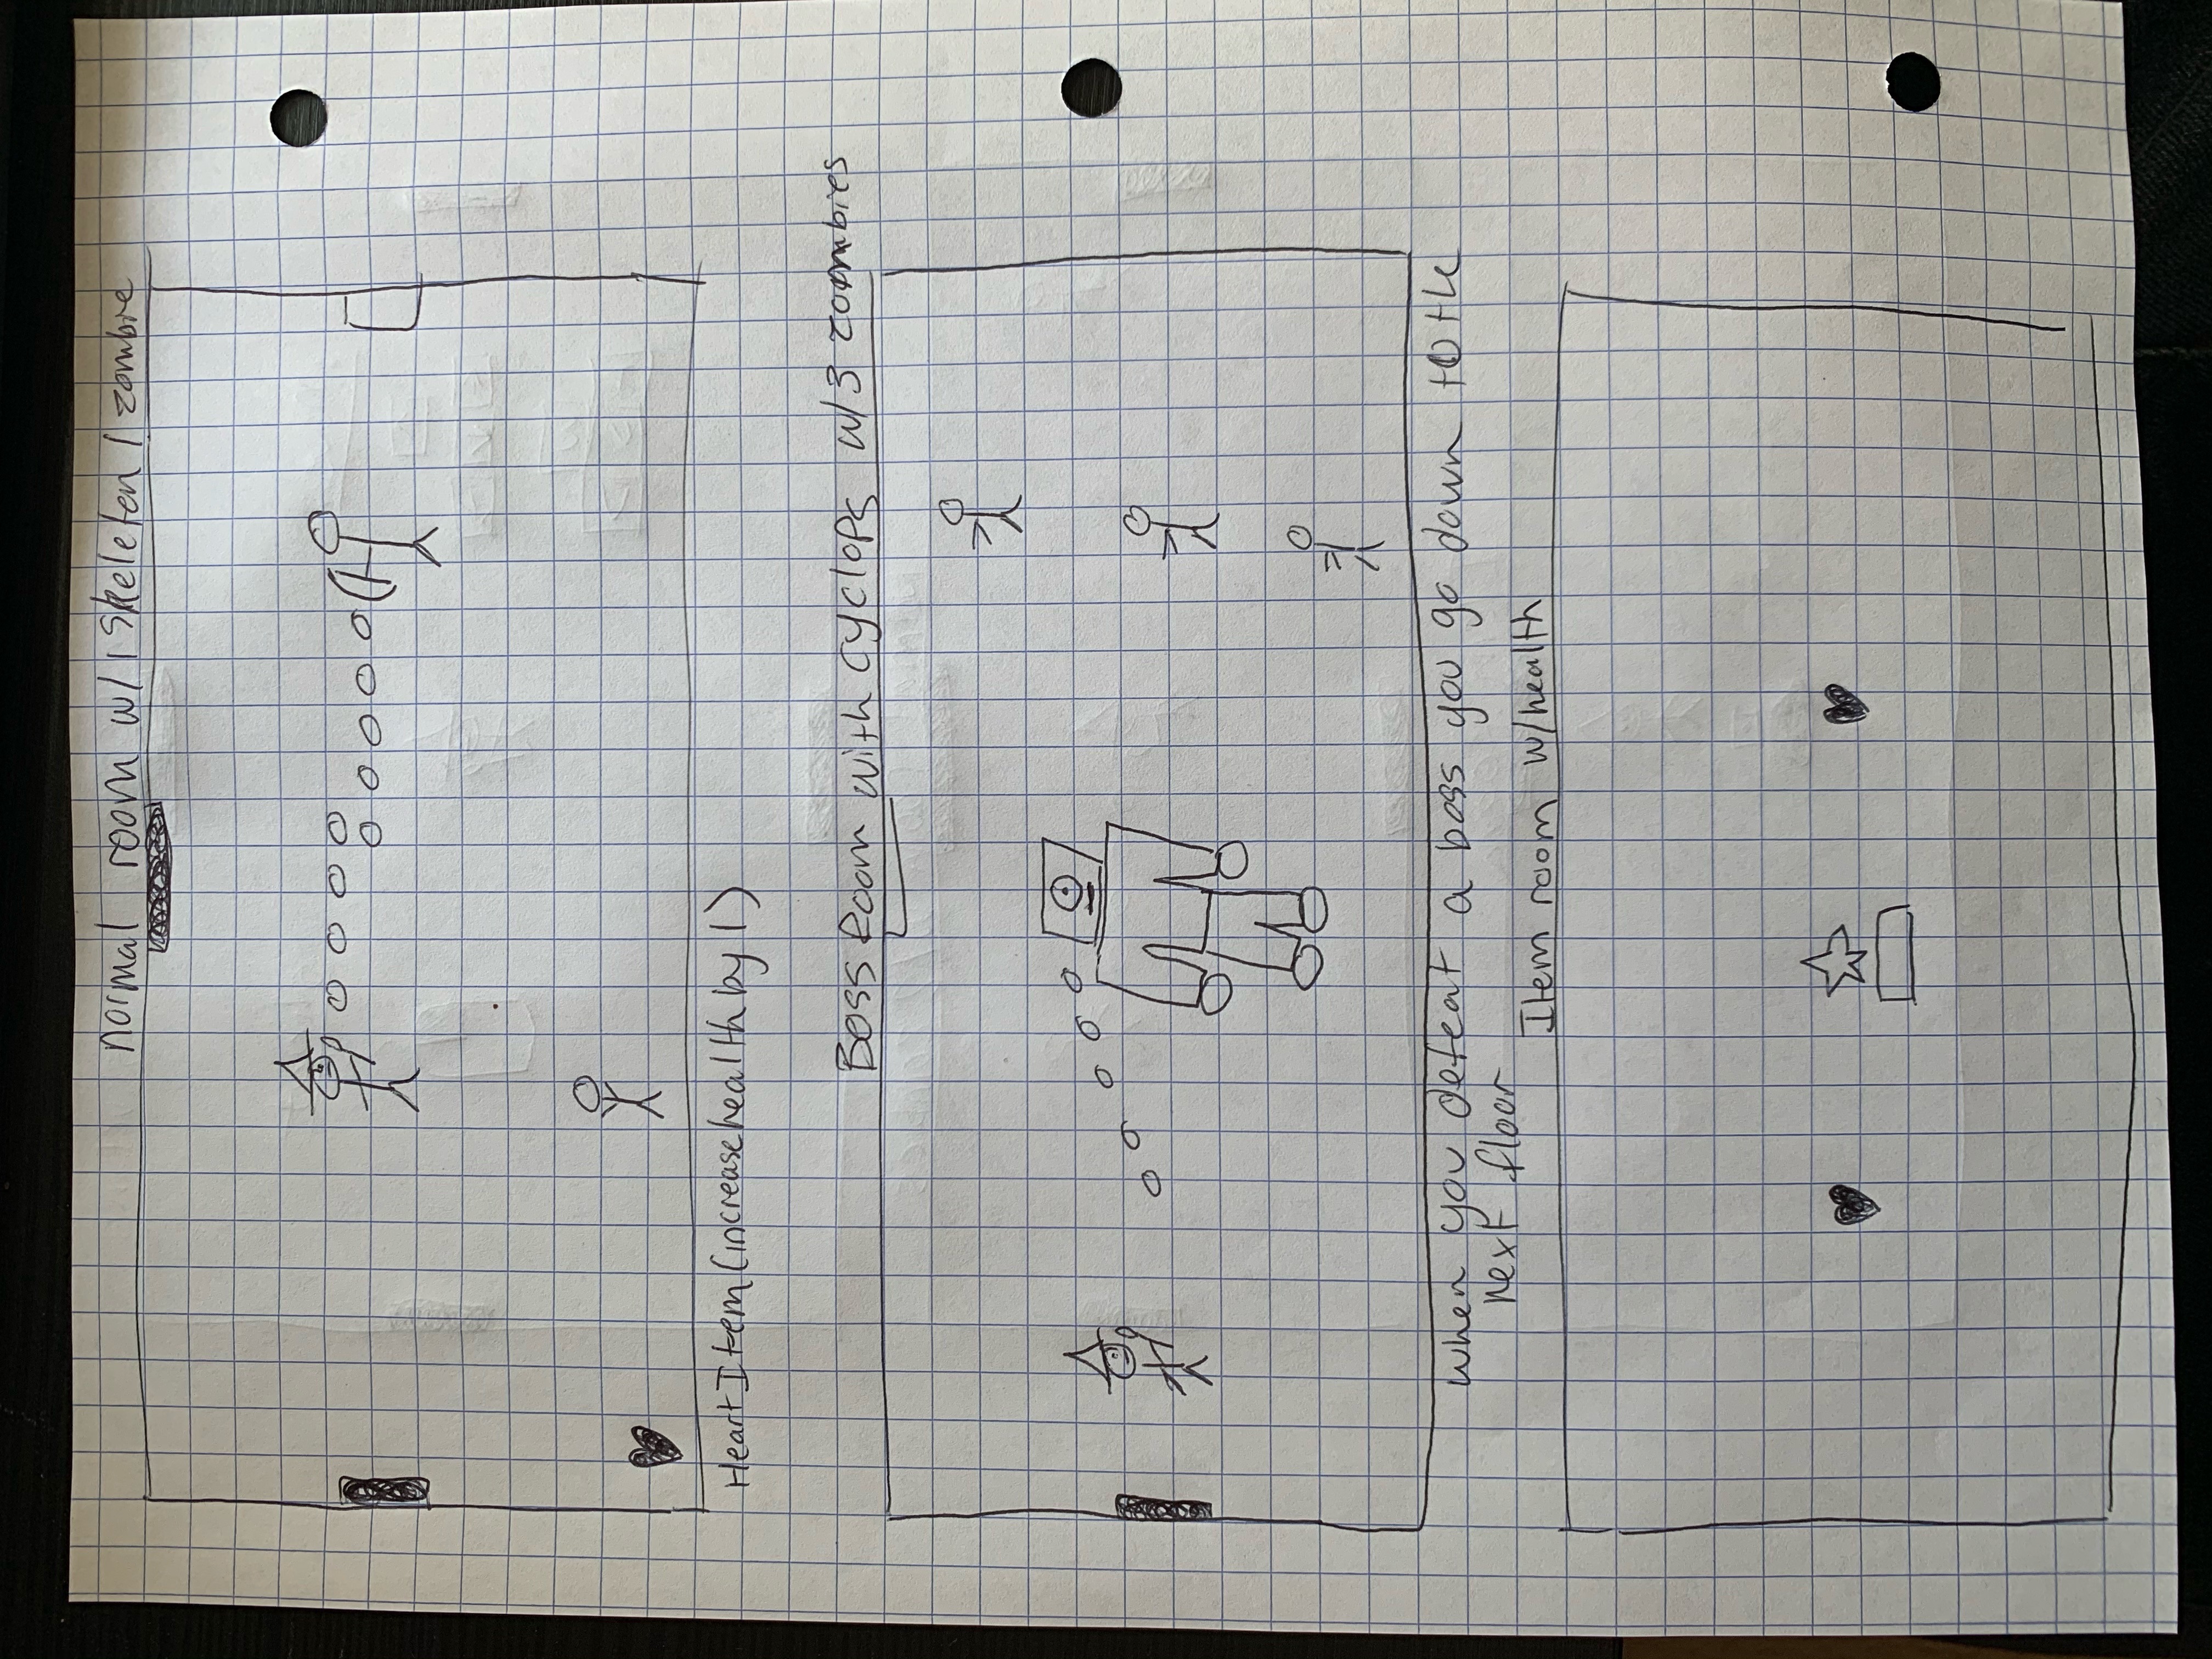 normal room w/ 1 skeleton 1 zombie
Heart Item (increase health by 1)
Boss Room with cyclops w/3 zombies
when you defeat a boss you go down to the
next floor
Item room w/health